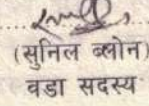 (सुनिल ब्लोन)
वडा सदस्य